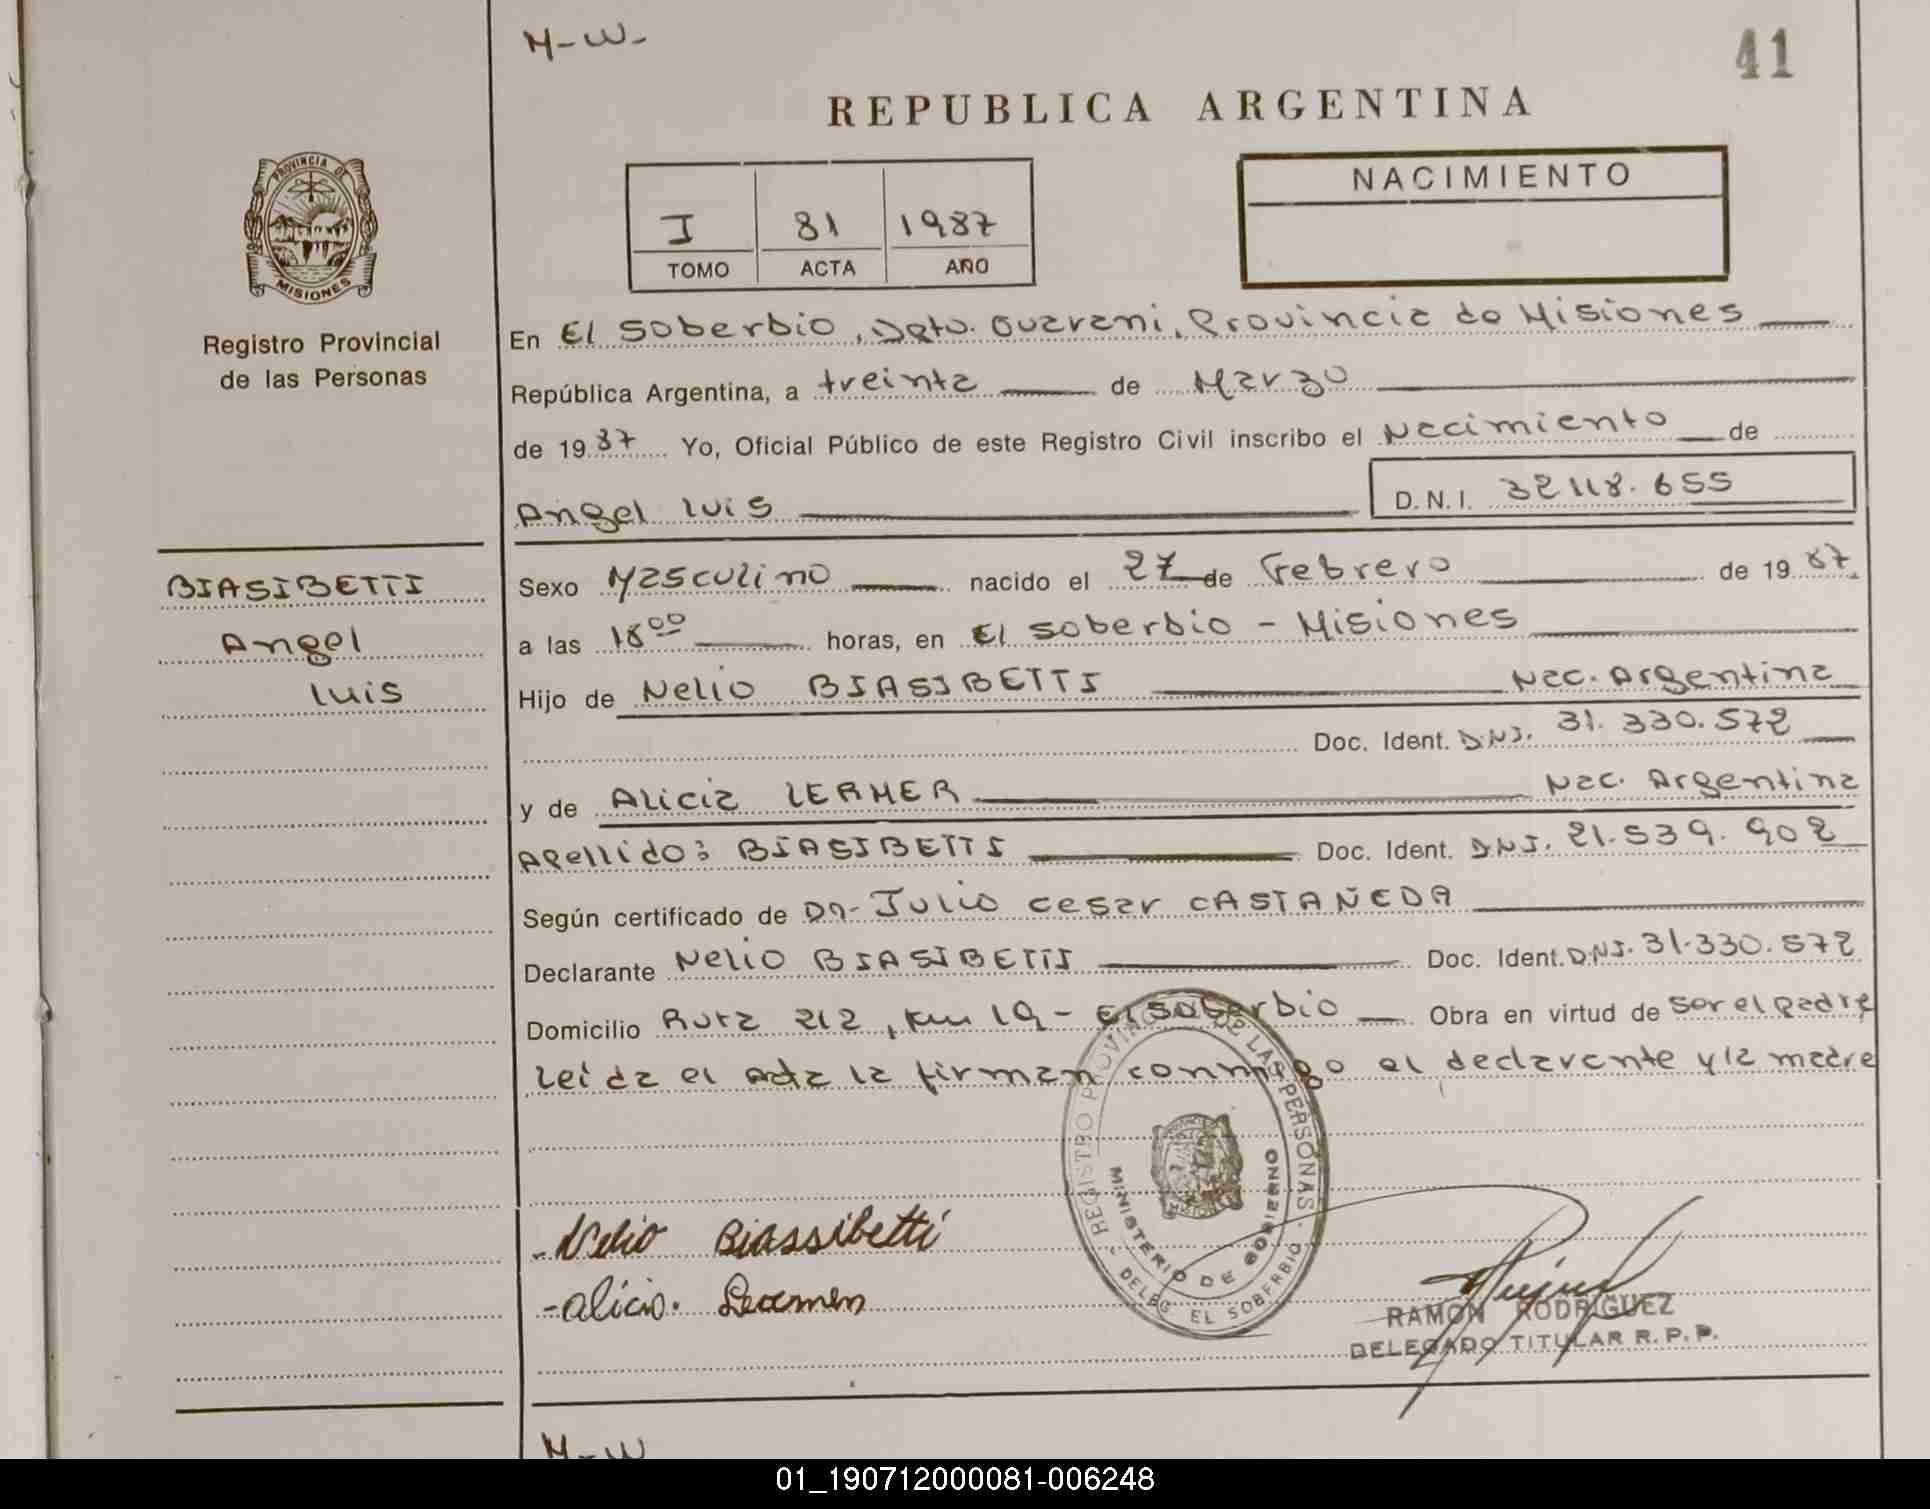 M-W-
41
REPUBLICA ARGENTINA
PROVINCIA DE
MISIONES
Registro Provincial
de las Personas
I 81 1987
TOMO ACTA AÑO
NACIMIENTO
En El Soberbio, Dpto. Guarani, Provincia de Misiones
República Argentina, a treinta de Marzo
de 1987 Yo, Oficial Público de este Registro Civil inscribo el Nacimiento de
Angel Luis D.N.I. 32118.655
BIASIBETTI
Angel
Luis
Sexo Masculino nacido el 27 de Febrero de 1987.
a las 18 00 horas, en El Soberbio - Misiones
Hijo de Nelio BIASIBETTI Nac. Argentina
Doc. Ident. D.N.I. 31.330.572
y de Alicia LERMER Nac. Argentina
Apellido: BIASIBETTI Doc. Ident. D.N.I. 21.539.902
Según certificado de Dn- Julio Cesar CASTAÑEDA
Declarante Nelio BIASIBETTI Doc. Ident. D.N.I. 31.330.572
Domicilio Ruta 212, Km 19 - El Soberbio Obra en virtud de ser el padre
Leida el acta la firman conmigo el declarante y la madre
REGISTRO PROVINCIAL DE LAS PERSONAS
MINISTERIO DE GOBIERNO
DELEG. EL SOBERBIO
- Nelio Biassibetti
- alicia.
RAMON RODRIGUEZ
DELEGADO TITULAR R.P.P.
M-W
01_190712000081-006248